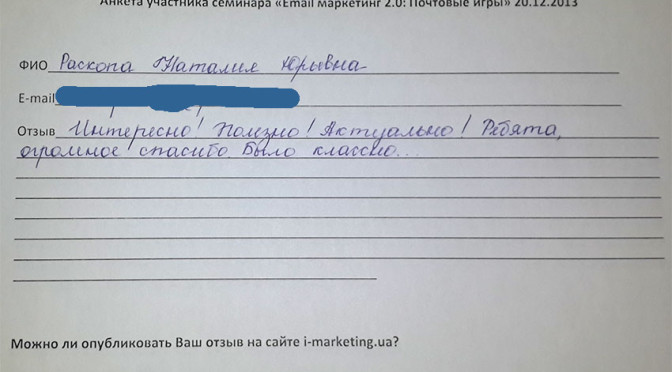 Анкета участника семинара «Email маркетинг 2.0: Почтовые игры» 20.12.2013
ФИО Раскопа Наталия Юрывна
E-mail
Отзыв Интересно! Полизно! Актуально! Ребята,
огромное спасибо. Было классно...
Можно ли опубликовать Ваш отзыв на сайте i-marketing.ua?